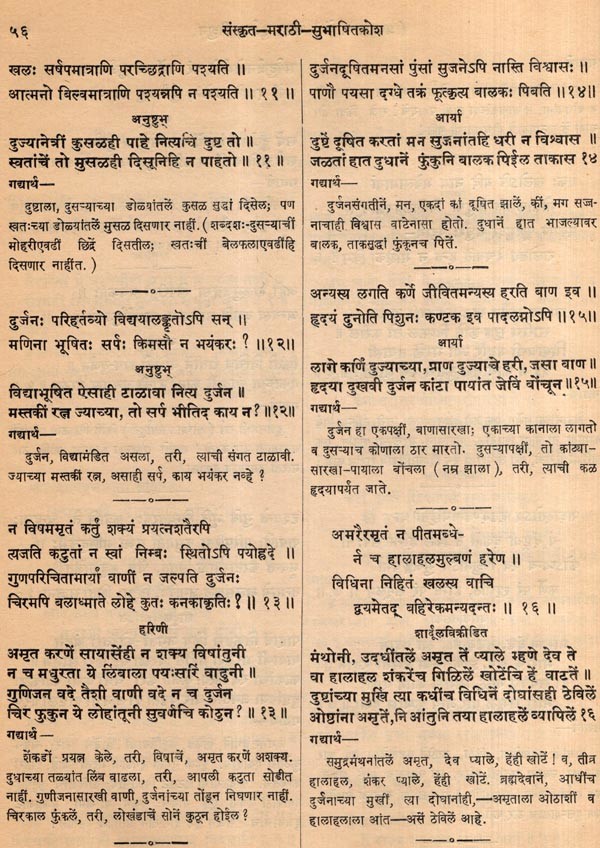 ५६
संस्कृत—मराठी—सुभाषितकोश
खलः सर्षपमात्राणि परच्छिद्राणि पश्यति ॥
आत्मनो बिल्वमात्राणि पश्यन्नपि न पश्यति ॥ ११ ॥
अनुष्टुभ्
दुज्यानेत्रीं कुसळही पाहे नित्यचि दुष्ट तो ॥
स्वतांचें तो मुसळही दिसूनिहि न पाहतो ॥ ११ ॥
गद्यार्थ—
दुष्टाला, दुसऱ्याच्या डोळ्यांतलें कुसळ सुद्धां दिसेल; पण
स्वतःच्या डोळ्यांतलें मुसळ दिसणार नाहीं. ( शब्दशः-दुसऱ्याचीं
मोहरीएवढीं छिद्रें दिसतील; स्वतःचीं बेलफळाएवढींहि
दिसणार नाहींत. )
दुर्जनः परिहर्तव्यो विद्ययालङ्कृतोऽपि सन् ॥
मणिना भूषितः सर्पः किमसौ न भयंकरः ? ॥१२॥
अनुष्टुभ्
विद्याभूषित ऐसाही टाळावा नित्य दुर्जन ॥
मस्तकीं रत्न ज्याच्या, तो सर्प भीतिद काय न? ॥१२॥
गद्यार्थ—
दुर्जन, विद्यामंडित असला, तरी, त्याची संगत टाळावी.
ज्याच्या मस्तकीं रत्न, असाही सर्प, काय भयंकर नव्हे ?
न विषममृतं कर्तुं शक्यं प्रयत्नशतैरपि
त्यजति कटुतां न स्वां निम्बः स्थितोऽपि पयोह्रदे ॥
गुणपरिचितामार्यां वाणीं न जल्पति दुर्जनः
चिरमपि बलाध्माते लोहे कुतः कनकाकृतिः ? ॥ १३ ॥
हरिणी
अमृत करणें सायासेंही न शक्य विषांतुनी
न च मधुरता ये लिंबाला पयःसरिं वाढुनी ॥
गुणिजन वदे तैशी वाणी वदे न च दुर्जन
चिर फुकुन ये लोहांतूनी सुवर्णचि कोठुन ? ॥१३॥
गद्यार्थ—
शेंकडों प्रयत्न केले, तरी, विषाचें, अमृत करणें अशक्य.
दुधाच्या तळ्यांत लिंब वाढला, तरी, आपली कटुता सोडीत
नाहीं. गुणीजनासारखी वाणी, दुर्जनांच्या तोंडून निघणार नाहीं.
चिरकाल फुंकलें, तरी, लोखंडाचें सोनें कुठून होईल ?
दुर्जनदूषितमनसां पुंसां सुजनेऽपि नास्ति विश्वासः ॥
पाणौ पयसा दग्धे तक्रं फूत्कृत्य बालकः पिबति ॥१४॥
आर्या
दुष्टें दूषित करतां मन सुजनांतहि धरी न विश्वास ॥
जळतां हात दुधानें फुंकुनि बालक पिईल ताकास १४
गद्यार्थ—
दुर्जनसंगतीनें, मन, एकदां कां दूषित झालें, कीं, मग सज्ज-
नाचाही विश्वास वाटेनासा होतो. दुधानें हात भाजल्यावर
बालक, ताकसुद्धां फुंकूनच पितें.
अन्यस्य लगति कर्णे जीवितमन्यस्य हरति बाण इव ॥
हृदयं दुनोति पिशुनः कण्टक इव पादलग्नोऽपि ॥१५॥
आर्या
लागे कर्णिं दुज्याच्या, प्राण दुज्याचे हरी, जसा बाण ॥
हृदया दुखवी दुर्जन कांटा पायांत जेविं बोंचून ॥१५॥
गद्यार्थ—
दुर्जन हा एकपक्षीं, बाणासारखा; एकाच्या कानाला लागतो
व दुसऱ्याच कोणाला ठार मारतो. दुसऱ्यापक्षीं, तो कांट्या-
सारखा-पायाला बोंचला ( नम्र झाला ), तरी, त्याची कळ
हृदयापर्यंत जाते.
अमरैरमृतं न पीतमब्धे-
र्न च हालाहलमुल्बणं हरेण ॥
विधिना निहितं खलस्य वाचि
द्वयमेतद् बहिरेकमन्यदन्तः ॥ १६ ॥
शार्दूलविक्रीडित
मंथोनी, उदधींतलें अमृत तें प्याले म्हणे देव ते
वा हालाहल शंकरेंच गिळिलें खोटेंचि हें वाटतें ॥
दुष्टांच्या मुखिं त्या कधींच विधिनें दोघांसही ठेविलें
ओष्ठांना अमृतें,नि आंतुनि तया हालाहलें व्यापिलें १६
गद्यार्थ—
समुद्रमंथनांतलें अमृत, देव प्याले, हेंही खोटें ! व, तीव्र
हालाहल, शंकर प्याले, हेंही खोटें. ब्रह्मदेवानें, आधींच
दुर्जनाच्या मुखीं, त्या दोघांनांही,—अमृताला ओठाशीं व
हालाहलाला आंत—असें ठेविलें आहे.